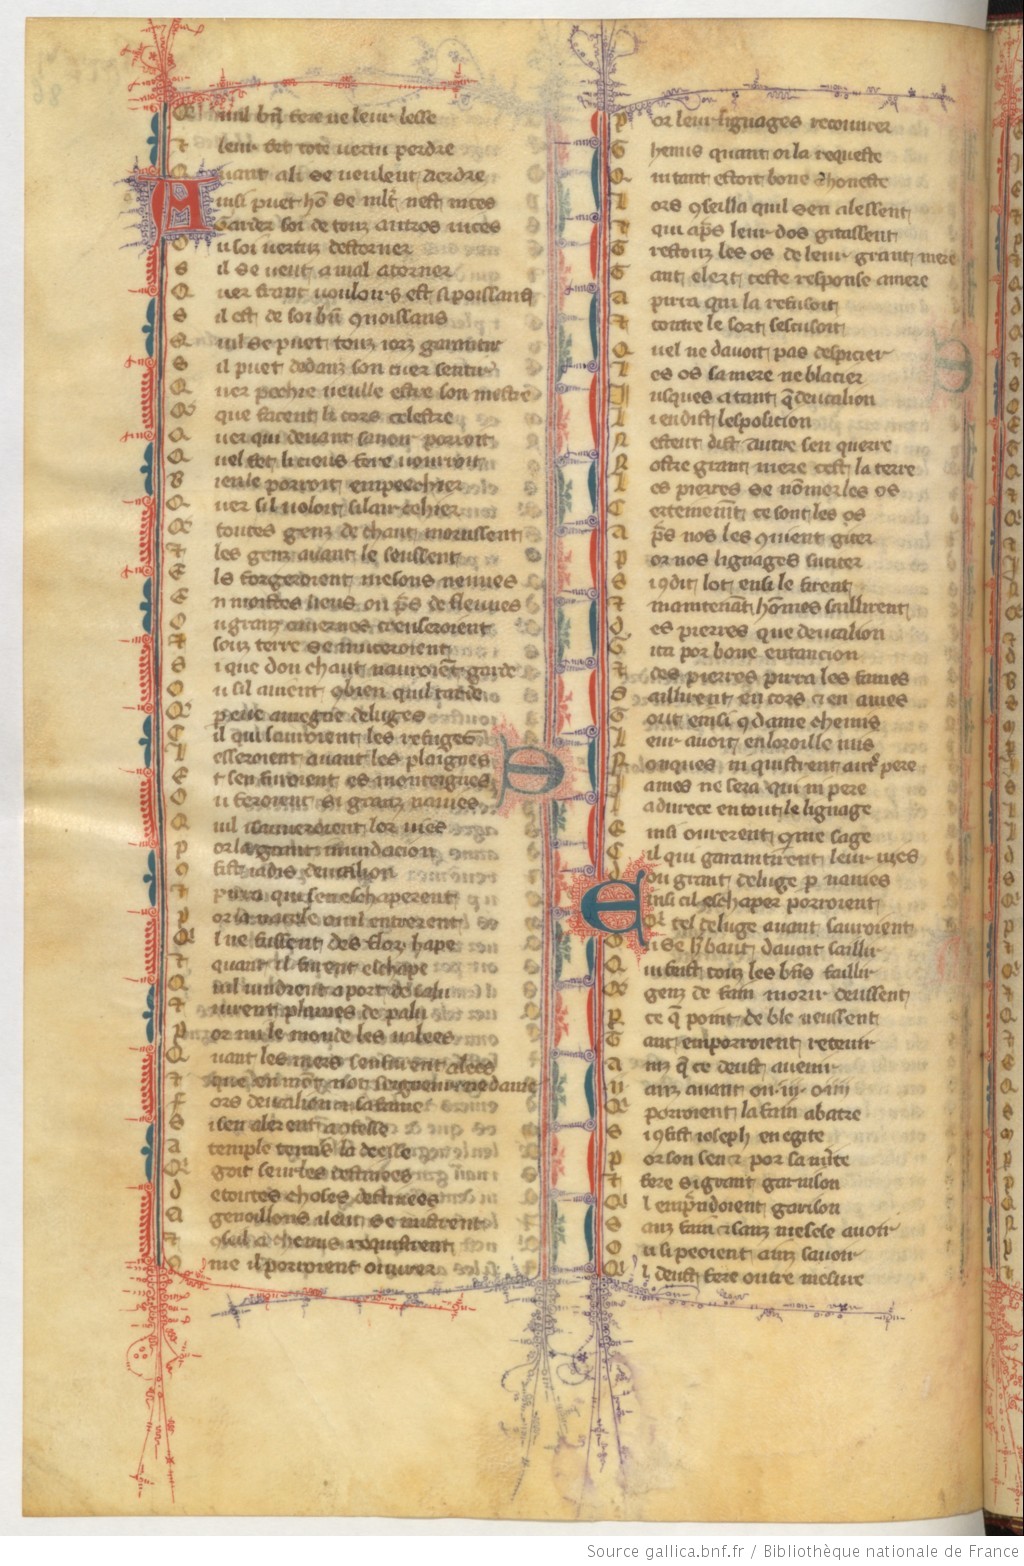 Qu nul bn fere ne leur lesse
T leur tot tote vertu perdre
Q uant a li se veulent aerdre
Ainsi puet ho se mlt nest nices
Garder soi de touz autres vices
O u soi vertuz destorner
S il se veut a mal atorner
Q uer franc vouloirs est si poissanz
S il est de soi bn 9noissans
Q uil se puet touz iorz garantir
S il puet dedanz son cuer sentir
Q uer pechie veulle estre son mestre
Q que facent li cors celestre
Q uer qui devant savoir porroit
Q uel fet li cieus fere vourroit
B ien le porroit empeeschier
Q uer sil voloit si lair sechier
Q toutes genz de chaut morussent
T les genz avant le seussent
E ls forgeroient mesons neuves
E n moistes lieus ou ps de fleuves
O u granz cavernes creuseroient
T souz terre se muceroient
S i que dou chaut nauroient garde
O u sil avient 9bien quil tarde
Q pene aviegne deluges
C il qui sauroient les refuges
L esseroient avant les plaignes
E t sen fuiroient es montaignes
O u feroient si granz navies
Q uil sauveroient lor vies
P or la grant inundacion
9 fist iadis deucalion
T pirra qui sen eschaperent
P or la nacele ou il entrerent
Q l ne fussent des floz hape
T quant il furent eschape
Q uil vindrent a port de salu
T virent plaines de palu
P or mi le monde les valees
Q uant les mers sen furent alees
T que en mot not seigneur ne dame
F ors deucalion et sa fame
S i sen alerent a cfesse
A temple temis la deesse
Q goit seur les destinees
D e toutes choses destinees
A genoillons ileuc se mistrent
T 9seil a themis requistrent
C 9me il porroient ouvrer
P or leur lignages recouvrer
T hemis quant oi la requeste
Q ui tant estoit bone et honeste
L ors 9seilla quil sen alessent
T qui aps leur dos gitassent
T restouz les os de leur grant mere
T ant e lert ceste response amere
A pirra qui la refusoit
T contre le sort sescusoit
Q uel ne davoit pas despicier
L es os sa mere ne blacier
I usques a tant q deucalion
L i en dist lesposicion
N estuet dist autre sen querre
N ostre grant mere cest la terre
L es pierres se nomer les os
C ertement ce sont les os
A ps nos les 9vient giter
P or nos lignages susciter
S i 9 dit lot ensi le firent
T maintenant homes saillirent
D es pierres que deucalion
G ita por bone entancion
T des pierres pirra les fames
S aillirent en cors et en ames
T out ensi 9 dame themis
L eur avoit en loroille mis
N onques ni quistrent autre pere
I ames ne sera qui ni pere
L a durece en tout le lignage
E insi ouvrerent 9me sage
C il qui garantirent leur vies
D ou grant deluge p navies
Ainsi cil eschaper porroient
Q tel deluge avant sauroient
O u se hbaut davoit saillir
Q ui feist touz les bns faillir
Q genz de fain morir deussent
P ce q point de ble neussent
T ant em porroient retenir
A inz q ce deust avenir
D eus anz avant ou iii ou iiii
Q porroient la fain abatre
S i 9 fist ioseph en egite
P or son sen et por sa merite
T fere si grant garnison
Q l em pndroient garison
S anz fain et sanz mesese avoir
O u si peoient ainz savoir
Q l deust fere outre mesure